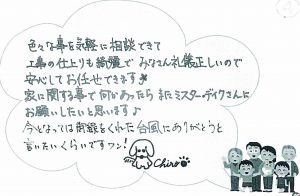 色々な事を気軽に相談できて
工事の仕上りも綺麗で みなさん礼儀正しいので
安心してお任せできます♪
家に関する事で何かあったら またミスターデイクさんに
お願いしたいと思います♪
今となっては雨樋をくれた台風にありがとうと
言いたいくらいですワン!
Chiro